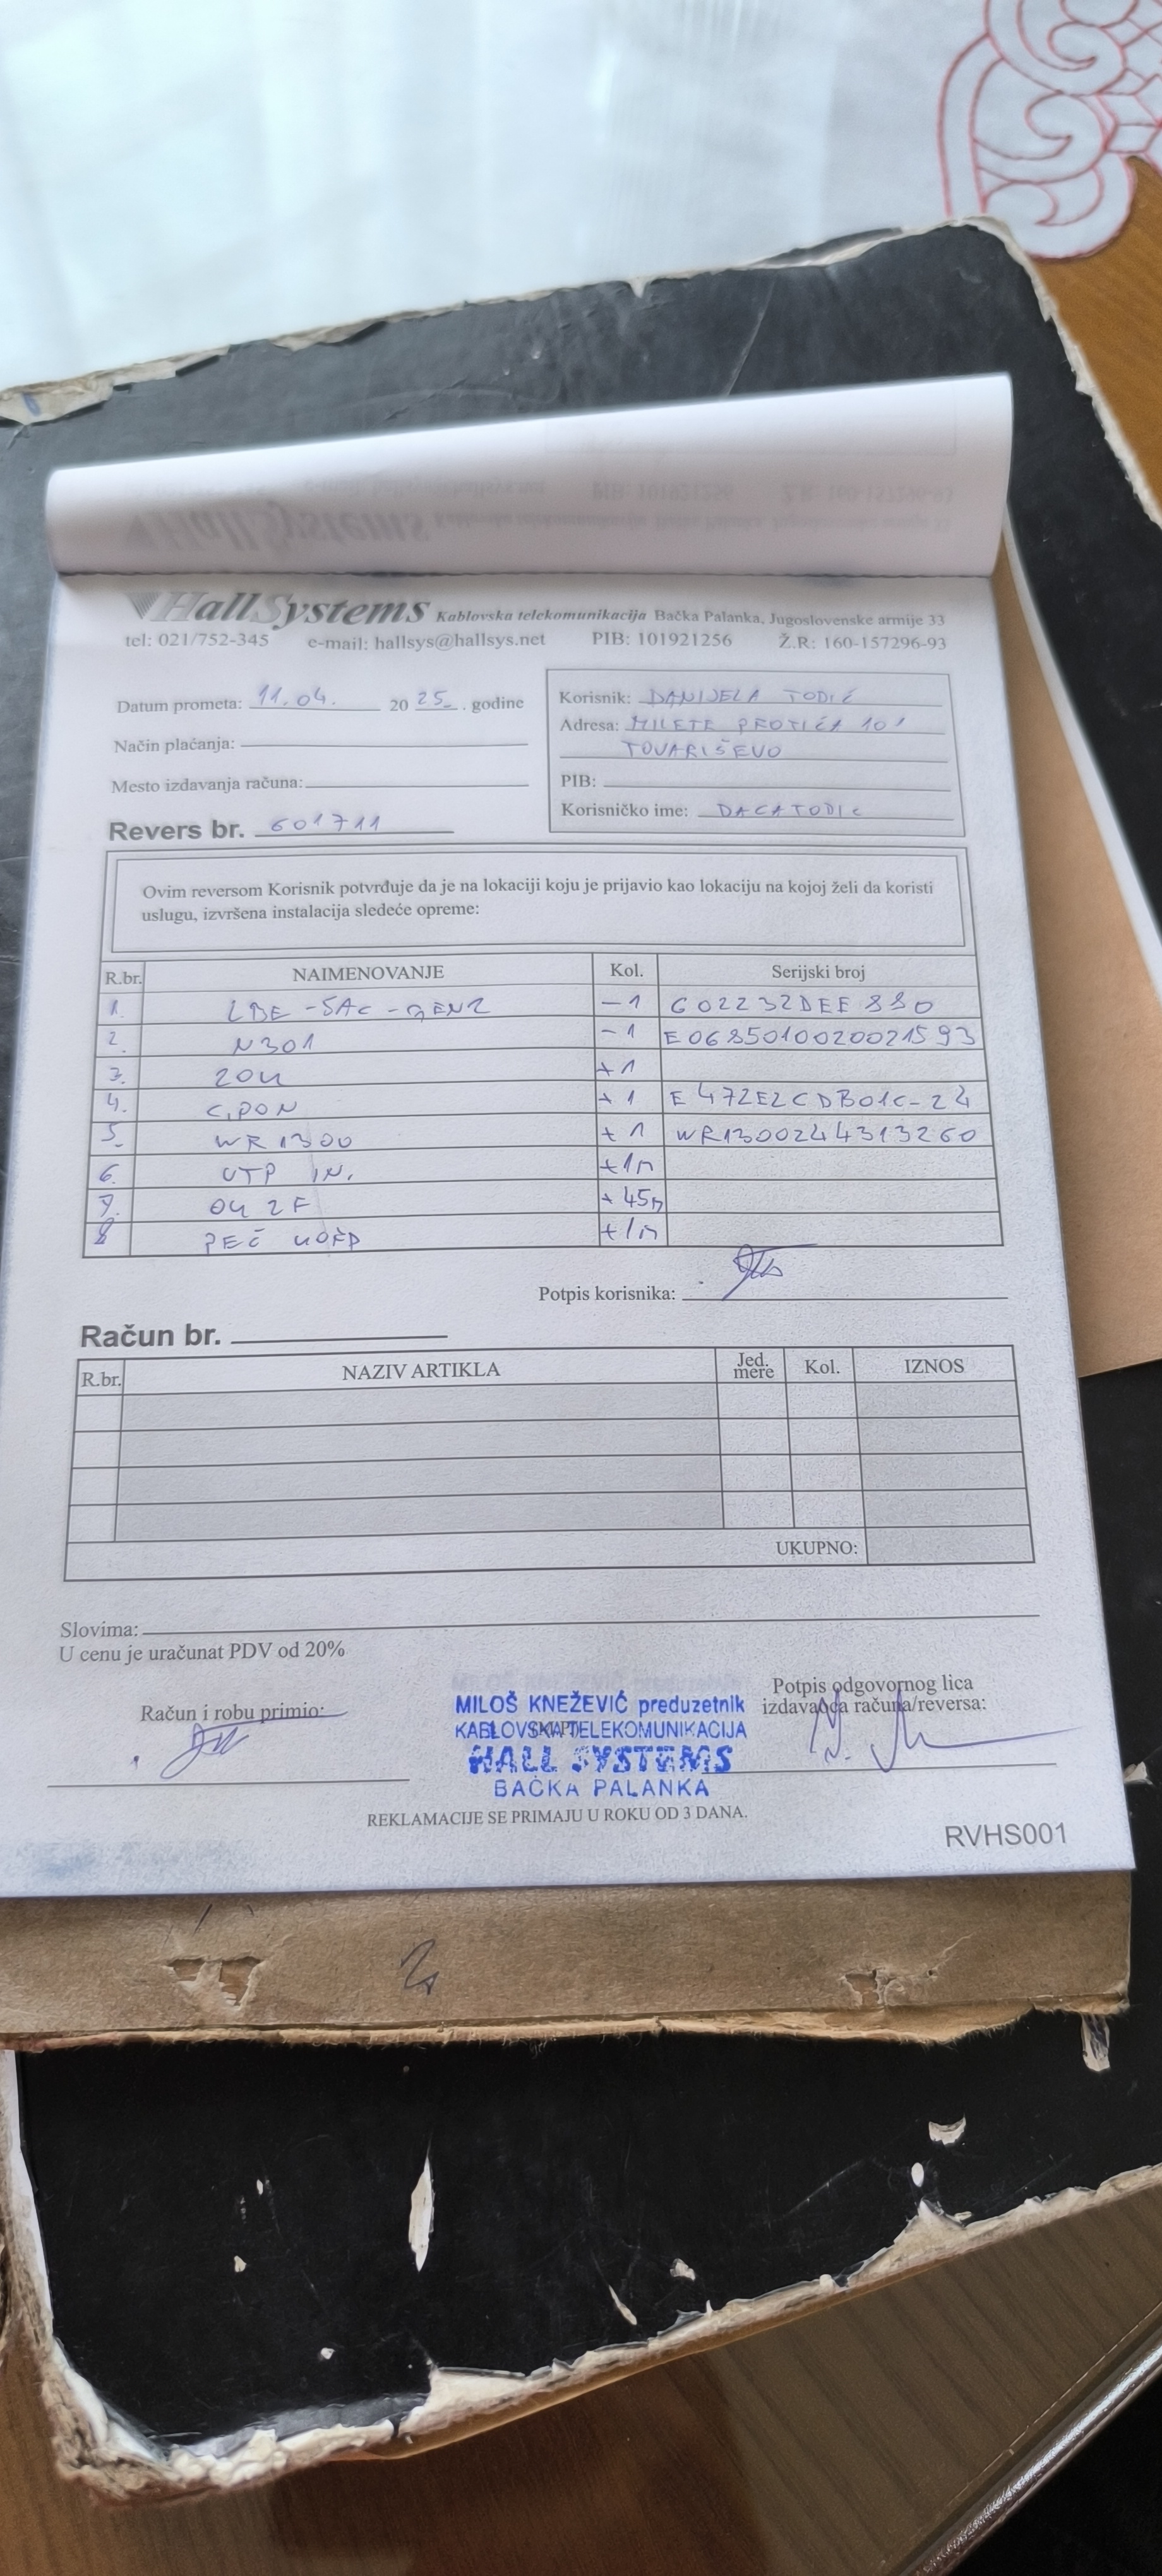 HallSystems Kablovska telekomunikacija Bačka Palanka, Jugoslovenske armije 33
tel: 021/752-345 e-mail: hallsys@hallsys.net PIB: 101921256 Ž.R: 160-157296-93
Datum prometa: 11.04. 20 25. . godine
Način plaćanja:
Mesto izdavanja računa:
Revers br. 601711
Korisnik: DANIJELA TODIĆ
Adresa: MILETE PROTIĆA 101
TOVARIŠEVO
PIB:
Korisničko ime: DACATODIC
Ovim reversom Korisnik potvrđuje da je na lokaciji koju je prijavio kao lokaciju na kojoj želi da koristi
uslugu, izvršena instalacija sledeće opreme:
R.br. NAIMENOVANJE Kol. Serijski broj
1. LBE-5AC-GEN2 -1 602232DEE880
2. N301 -1 E0685010020021593
3. ZOK +1
4. GPON +1 E472E2CDB01C-24
5. WR1300 +1 WR1300244313260
6. UTP IN. +1m
7. OK 2F +45m
8 +1m
Potpis korisnika:
Račun br.
R.br. NAZIV ARTIKLA Jed. mere Kol. IZNOS
UKUPNO:
Slovima:
U cenu je uračunat PDV od 20%
Račun i robu primio:
MILOŠ KNEŽEVIĆ preduzetnik
KABLOVSKA TELEKOMUNIKACIJA
HALL SYSTEMS
BAČKA PALANKA
Potpis odgovornog lica
izdavaoca računa/reversa:
REKLAMACIJE SE PRIMAJU U ROKU OD 3 DANA.
RVHS001